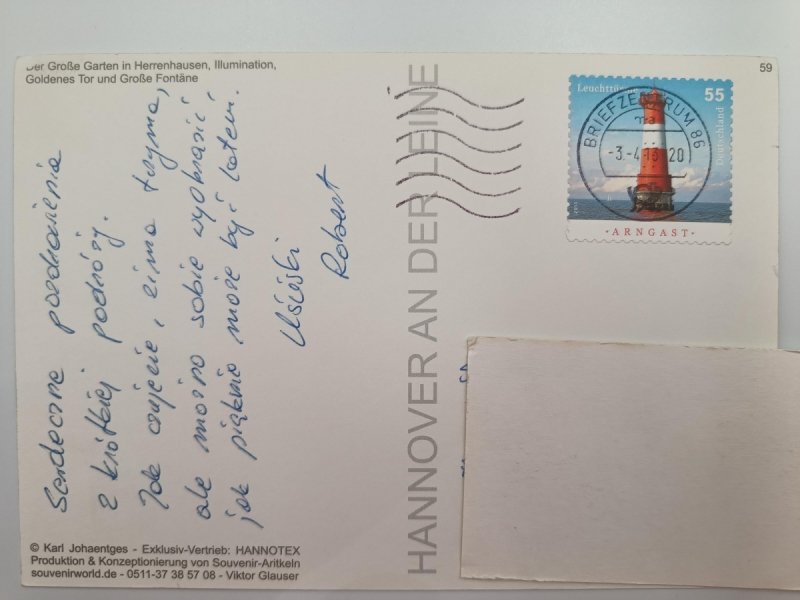 Der Große Garten in Herrenhausen, Illumination,
Goldenes Tor und Große Fontäne
59
Serdeczne pozdrowienia
z krótkiej podróży.
Jak czujecie, zima trzyma,
ale można sobie wyobrazić
jak pięknie może być latem.
Uściski
Robert
HANNOVER AN DER LEINE
Leuchttürme
55
Deutschland
ARNGAST
BRIEFZENTRUM 86
-3.-4.13 20
© Karl Johaentges - Exklusiv-Vertrieb: HANNOTEX
Produktion & Konzeptionierung von Souvenir-Aritkeln
souvenirworld.de - 0511-37 38 57 08 - Viktor Glauser